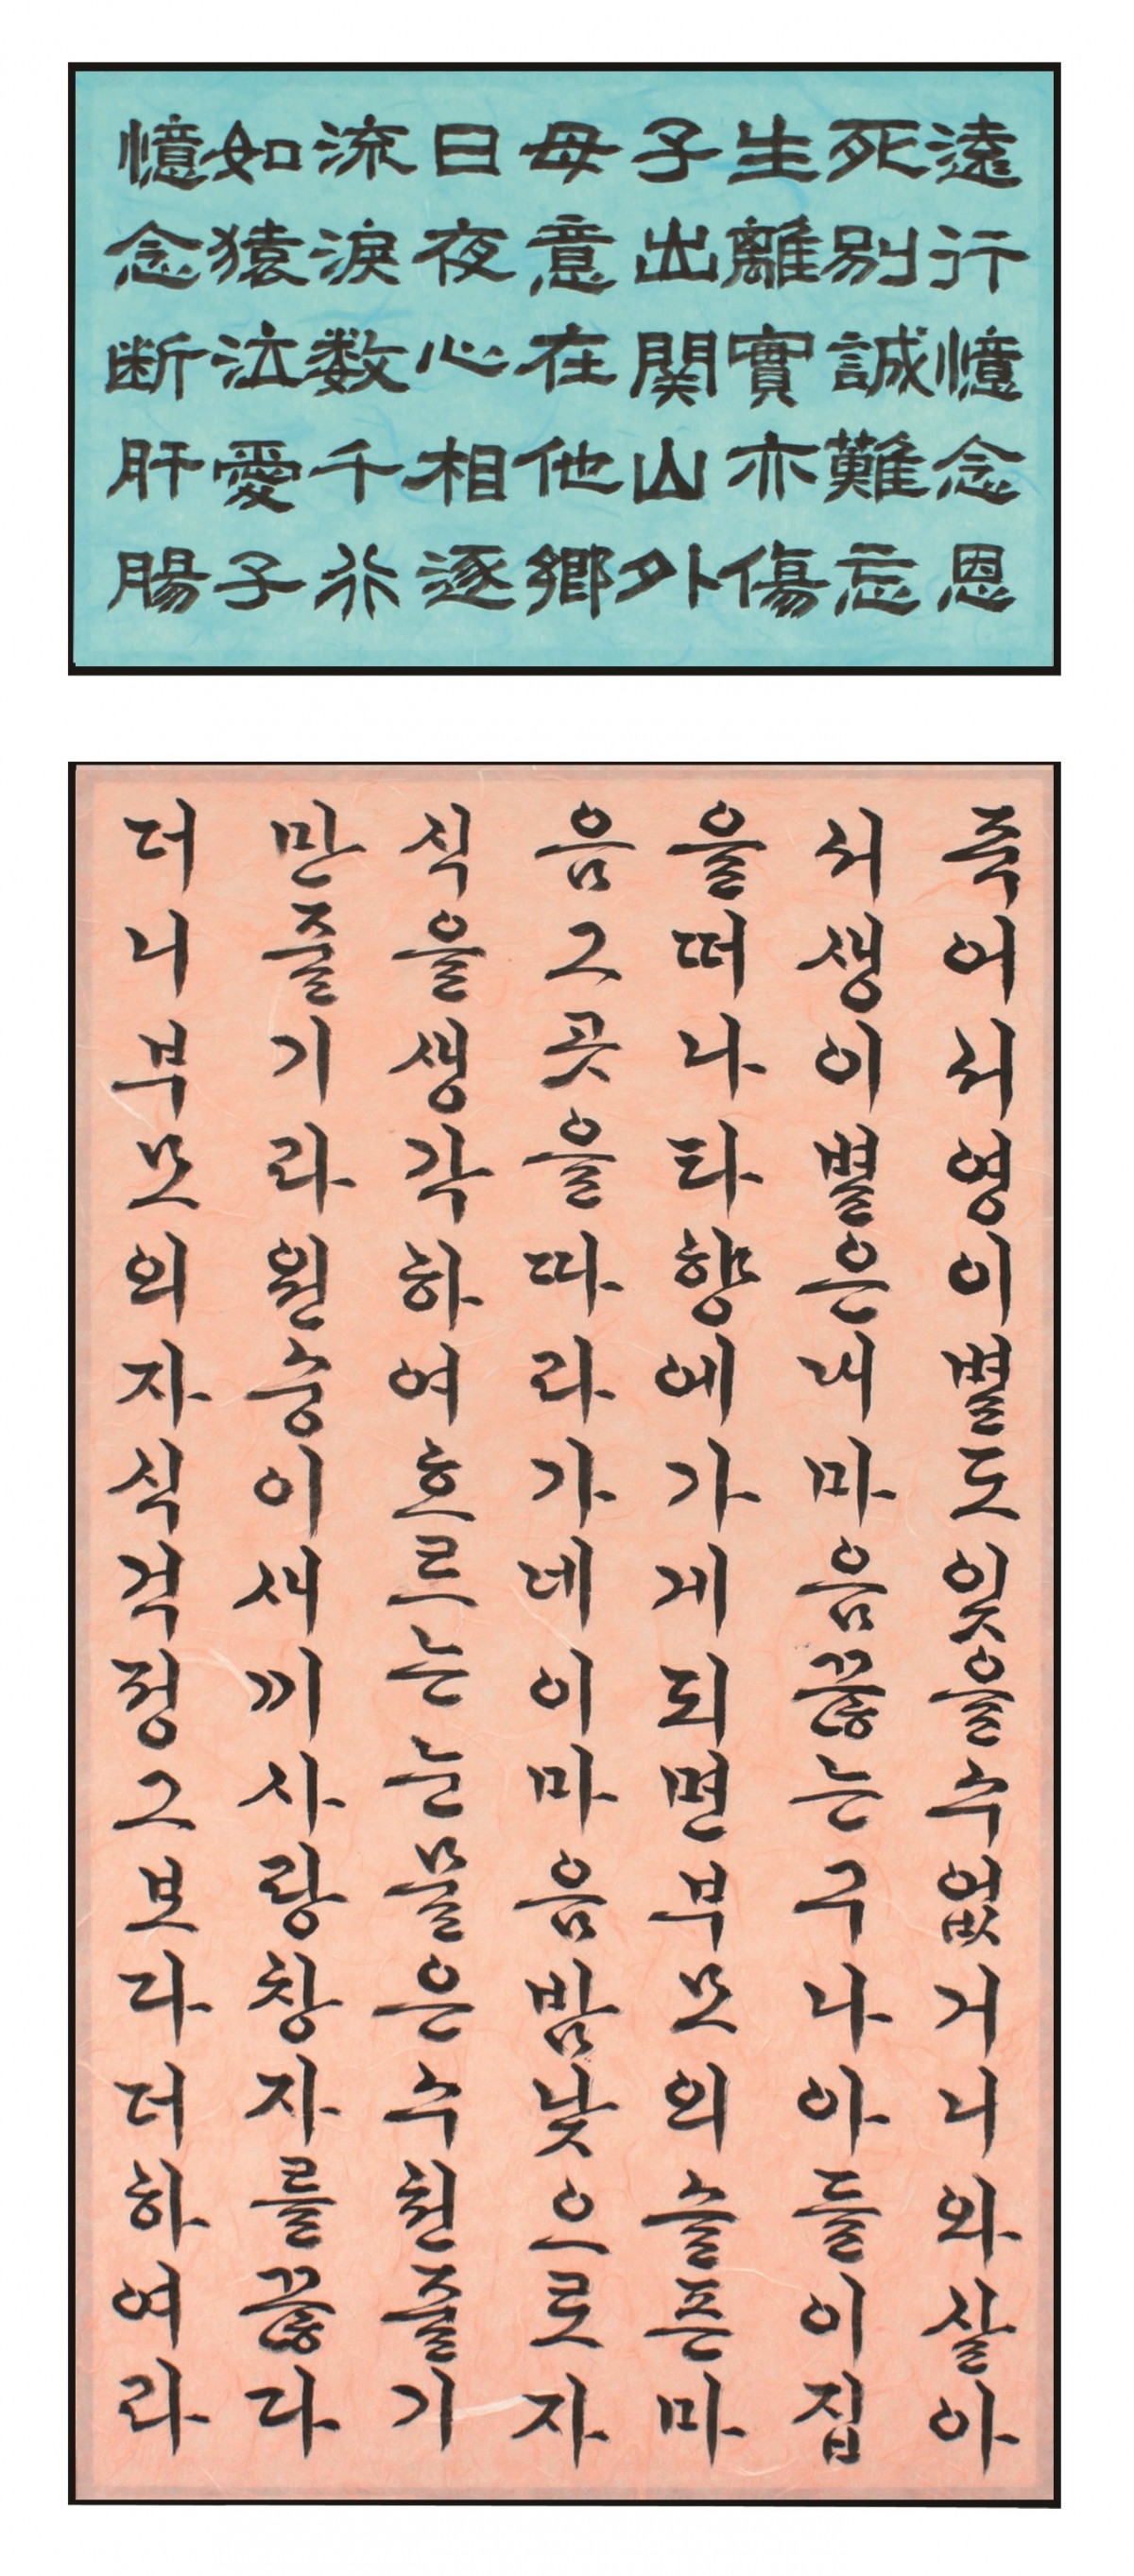 遠行憶念恩
死別誠難忘
生離實亦傷
子出関山外
母意在他鄉
日夜心相逐
流淚数千行
如猿泣愛子
憶念断肝腸
죽어서영이별도잊을수없거니와살아
서생이별은내마음끓는구나아들이집
을떠나타향에가게되면부모의슬픈마
음그곳을따라가데이마음밤낮으로자
식을생각하여흐르는눈물은수천줄기
만줄기라원숭이새끼사랑창자를끓다
더니부모의자식걱정그보다더하여라